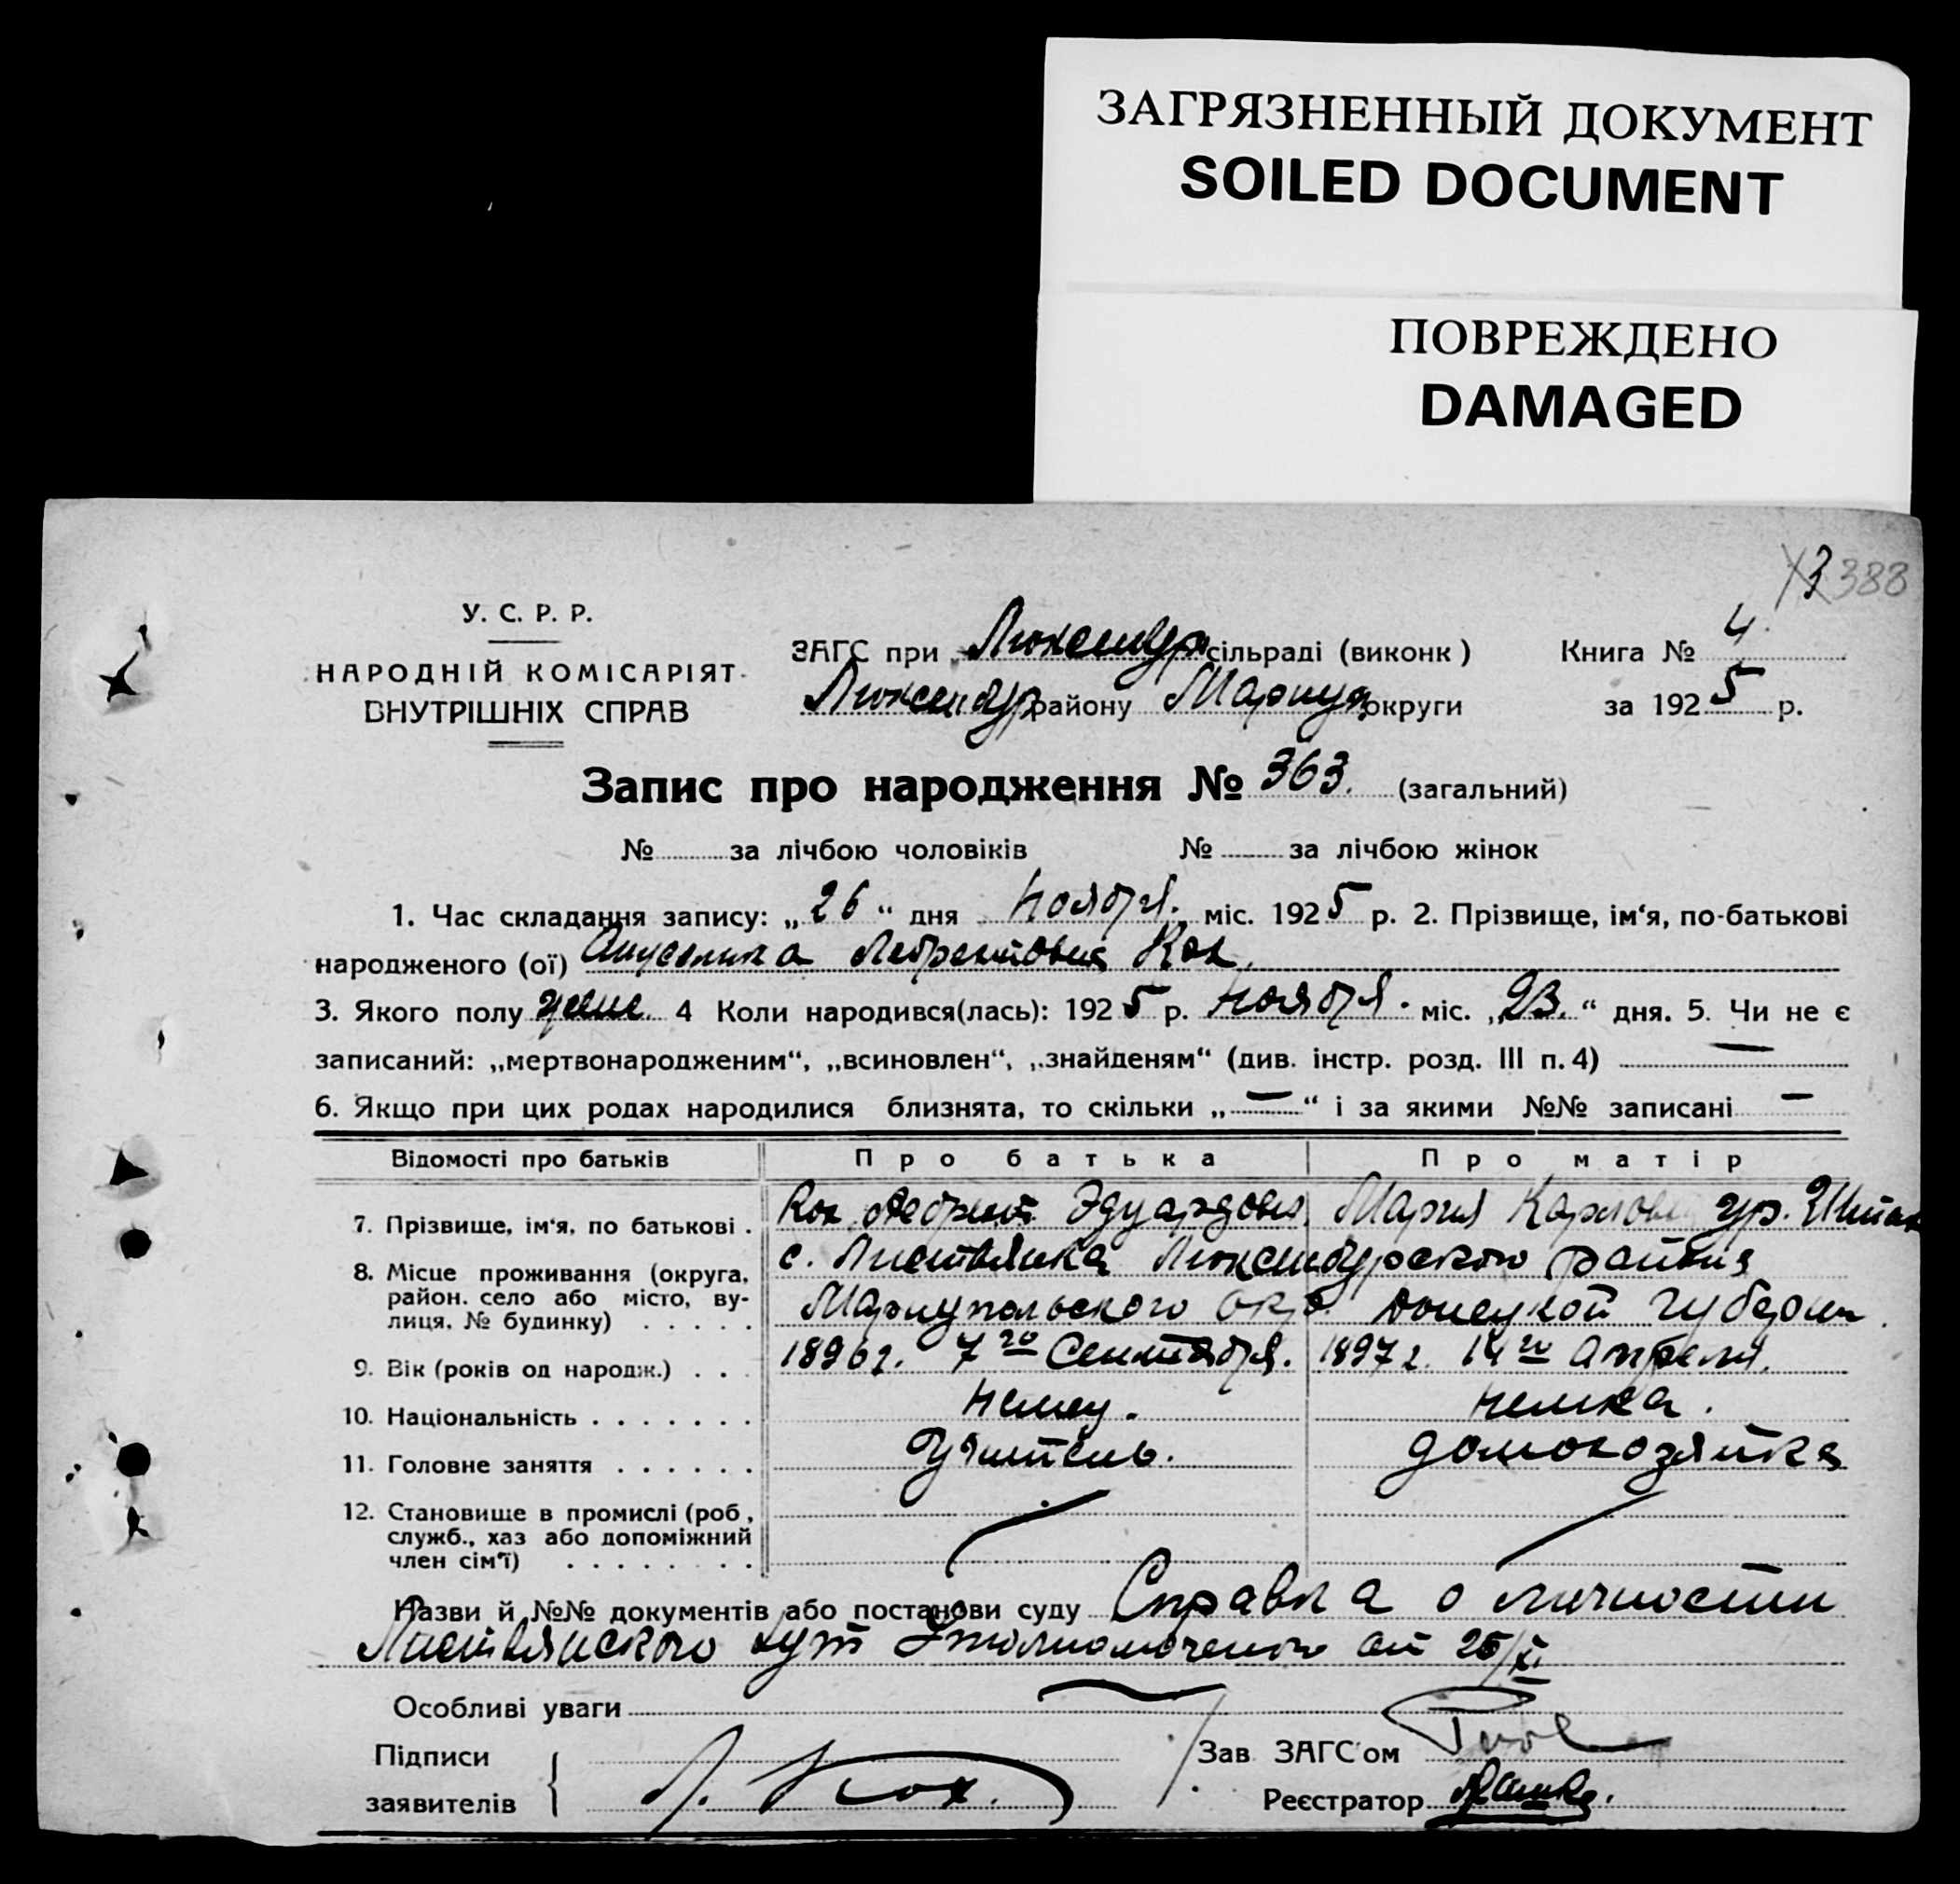 ЗАГРЯЗНЕННЫЙ ДОКУМЕНТ
SOILED DOCUMENT
ПОВРЕЖДЕНО
DAMAGED
388
У. С. Р. Р.
НАРОДНІЙ КОМІСАРІЯТ
ВНУТРІШНІХ СПРАВ
ЗАГС при Люксембур сільраді (виконк) Книга № 4.
Люксембур району Мариуп округи за 1925 р.
Запис про народження № 363. (загальний)
№ за лічбою чоловіків № за лічбою жінок
1. Час складання запису: „26“ дня Ноября. міс. 1925 р. 2. Прізвище, ім‘я, по-батькові
народженого (ої) Кох
3. Якого полу женс. 4 Коли народився(лась): 1925 р. Ноября. міс. „23.“ дня. 5. Чи не є
записаний: „мертвонародженим“, „всиновлен“, „знайденям“ (див. інстр. розд. III п. 4) —
6. Якщо при цих родах народилися близнята, то скільки „—“ і за якими №№ записані —
Відомості про батьків Про батька Про матір
7. Прізвище, ім‘я, по батькові . Кох Эдуардов Мария Карловн ур.
8. Місце проживання (округа, район. село або місто, вулиця, № будинку) . . . . .
с. Листвянка Люксембурского района
Мариупольского окр. Донецкой губернии.
9. Вік (років од народж.) . . . 1896 г. 7го Сентября. 1897 г. 14го апреля.
10. Національність . . . . . . . Немец. немка.
11. Головне заняття . . . . . . Учитель. домохозяйка
12. Становище в промислі (роб, служб., хаз або допоміжний член сім‘ї) . . . . . . . .
Назви й №№ документів або постанови суду Справка о личности
Листвянского хут Уполномоченого от 25/XI
Особливі уваги
Підписи
заявителів
Л. Кох.
Зав ЗАГС‘ом
Реєстратор